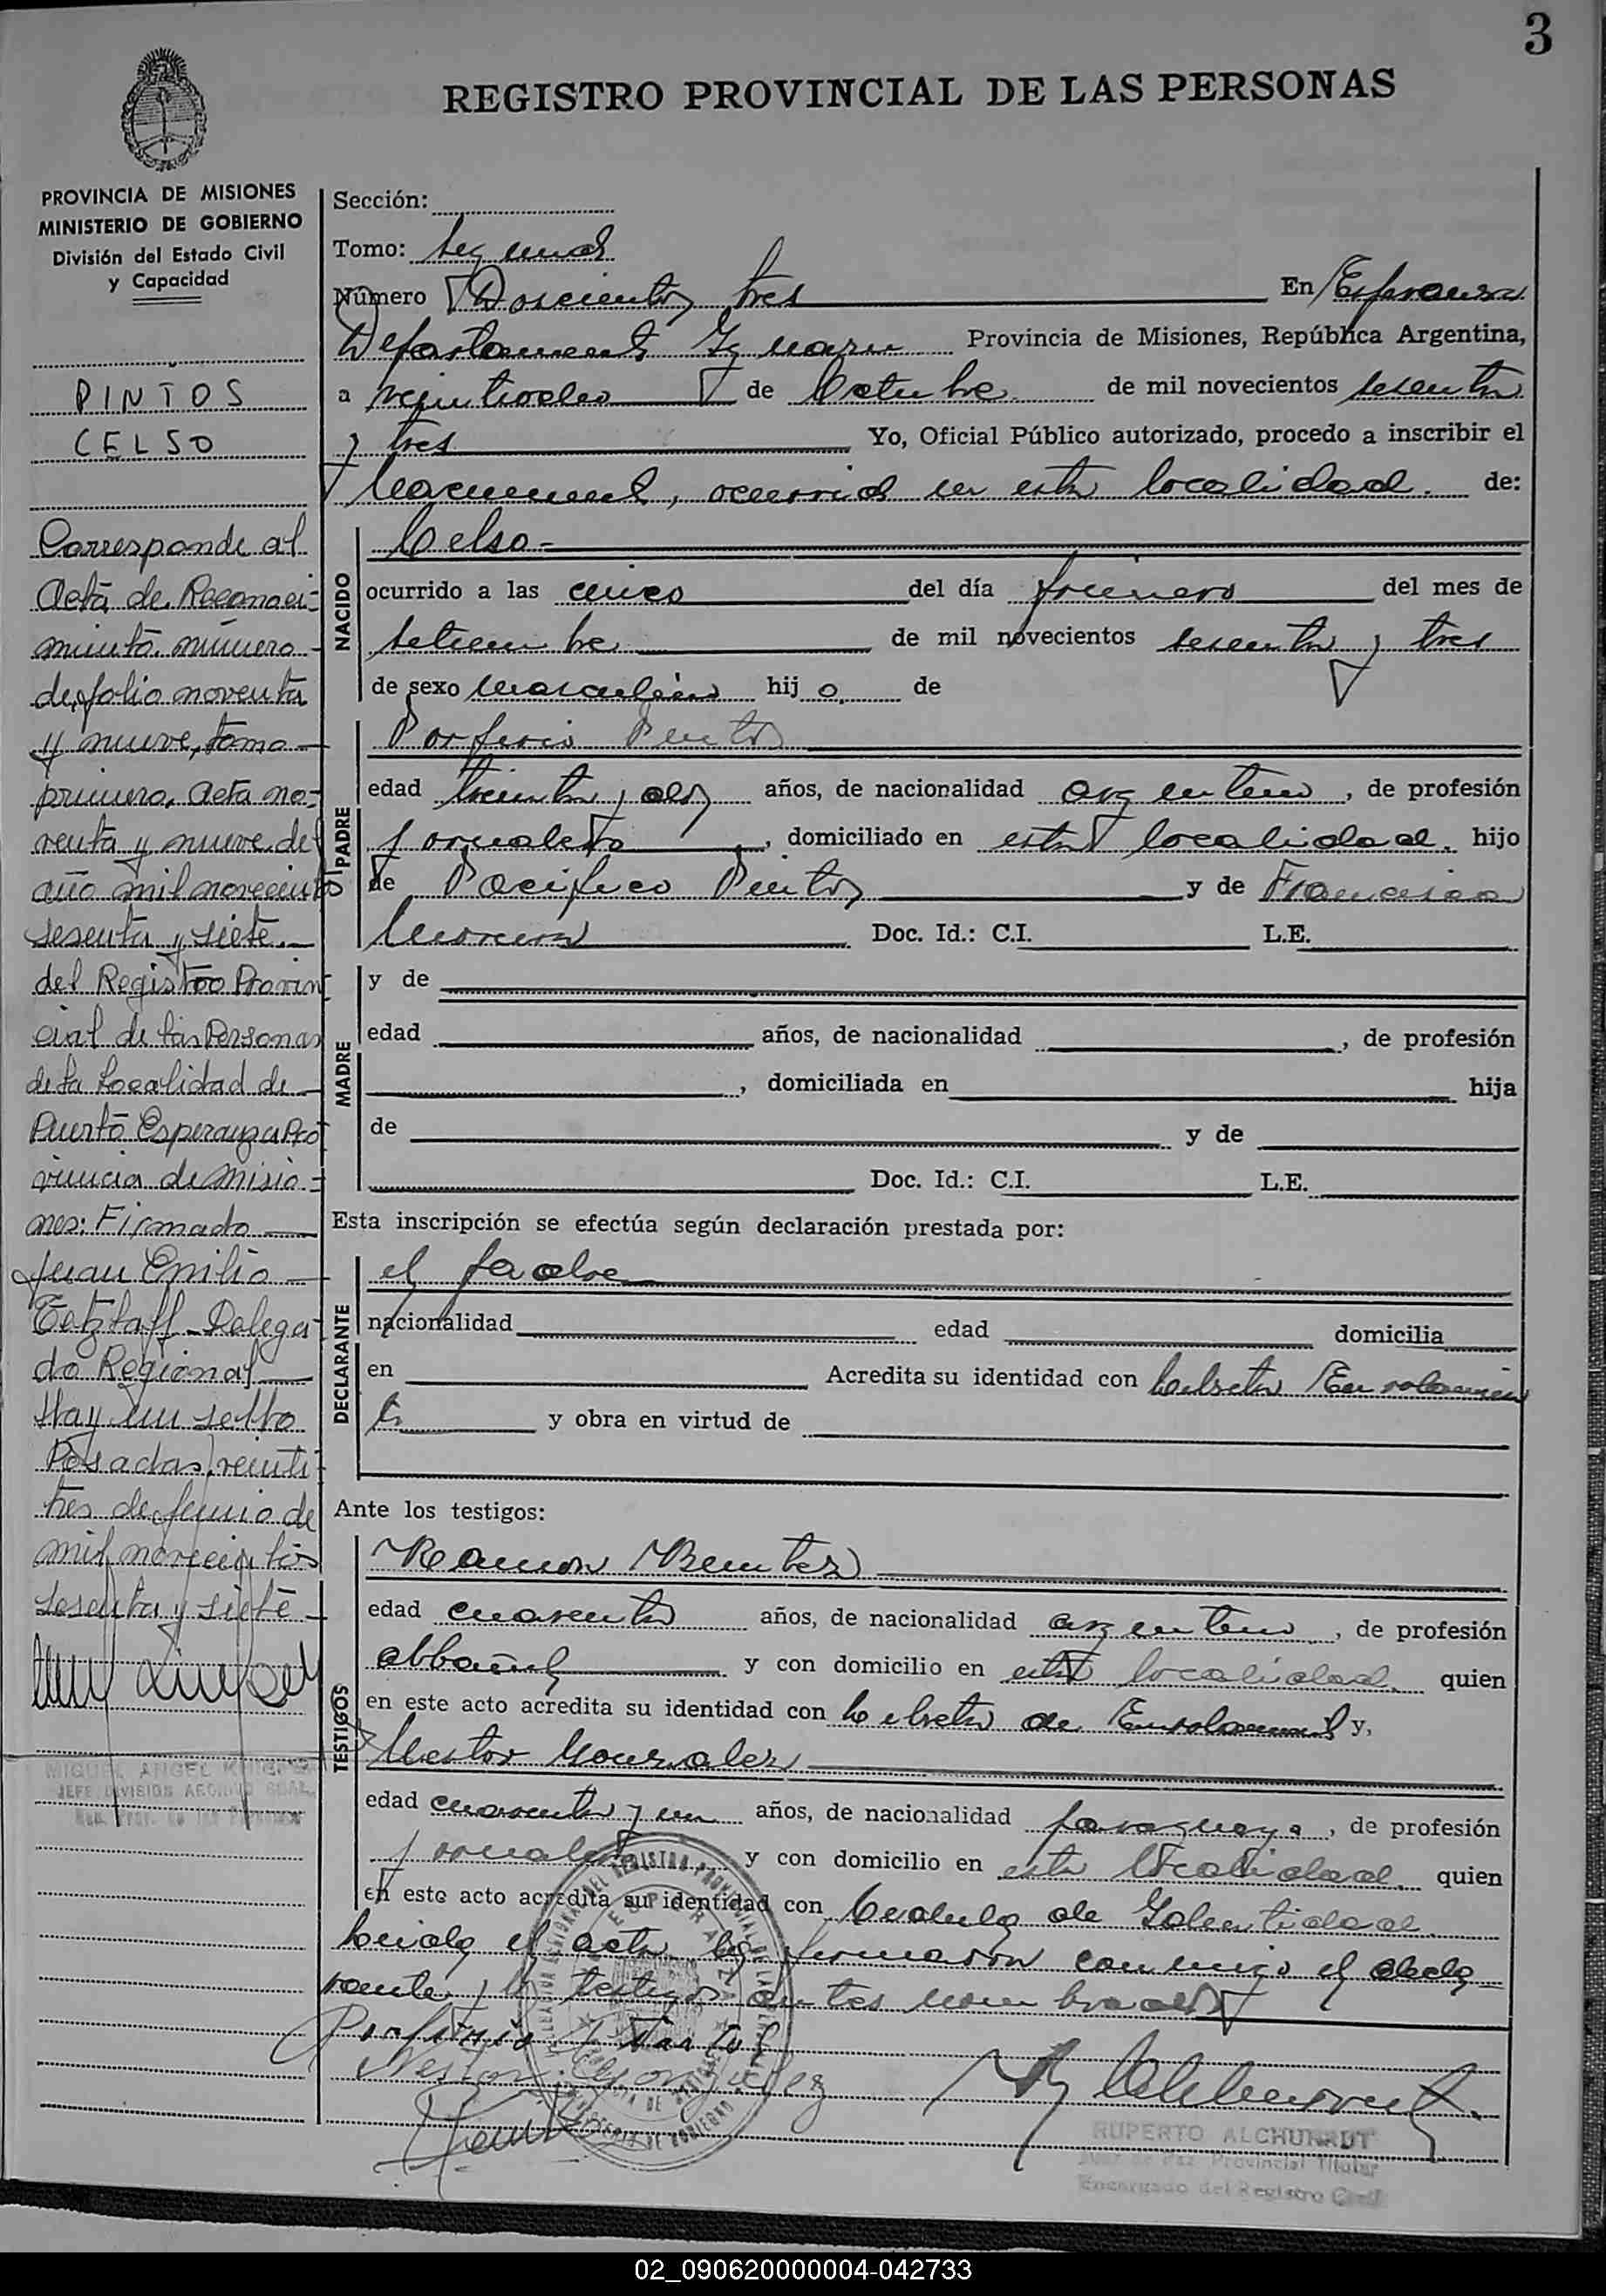 3
REGISTRO PROVINCIAL DE LAS PERSONAS
PROVINCIA DE MISIONES
MINISTERIO DE GOBIERNO
División del Estado Civil
y Capacidad
PINTOS
CELSO
Corresponde al
Acta de Reconoci-
miento número
de, folio noventa
y nueve, tomo
primero, Acta no-
venta y nueve del
año mil novecientos
sesenta y siete.
del Registro Provin
cial de las Personas
de la Localidad de
Puerto Esperanza Pro
vincia de Misio-
nes: Firmado
Juan Emilio
Delega-
do Regional
Hay un sello
Posadas, veinti-
tres de Junio de
mil novecientos
sesenta y siete
MIGUEL ANGEL
JEFE DIVISION ARCHIVO GRAL.
Reg. Prov. de las Personas
Sección:
Tomo: Segundo
Número Doscientos tres En Esperanza
Departamento Iguazu Provincia de Misiones, República Argentina,
a veintiocho de Octubre de mil novecientos sesenta
y tres Yo, Oficial Público autorizado, procedo a inscribir el
Nacimiento, ocurrido en esta localidad. de:
NACIDO
Celso-
ocurrido a las cinco del día primero del mes de
setiembre de mil novecientos sesenta y tres
de sexo masculino hijo de
PADRE
Porfirio Pintos
edad treinta y dos años, de nacionalidad argentino, de profesión
jornalero, domiciliado en esta localidad. hijo
de Pacifico Pintos y de Francisca
Doc. Id.: C.I. L.E.
MADRE
y de
edad años, de nacionalidad , de profesión
, domiciliada en hija
de y de
Doc. Id.: C.I. L.E.
Esta inscripción se efectúa según declaración prestada por:
DECLARANTE
el padre
nacionalidad edad domicilia
en Acredita su identidad con Libreta Enrolamien
to y obra en virtud de
Ante los testigos:
TESTIGOS
Ramon Benitez
edad cuarenta años, de nacionalidad argentino, de profesión
albañil y con domicilio en esta localidad. quien
en este acto acredita su identidad con Libreta de Enrolamiento y,
Nestor Gonzalez
edad cuarenta y un años, de nacionalidad paraguaya, de profesión
jornalero y con domicilio en esta localidad. quien
en este acto acredita su identidad con Cedula de Identidad.
Leida el acta la firmaron conmigo el decla-
rante y los testigos antes nombrados
Porfirio Pintos
Nestor Gonzalez
RUPERTO ALCHUNADT
Juez de Paz Provincial Titular
Encargado del Registro Civil
02_090620000004-042733